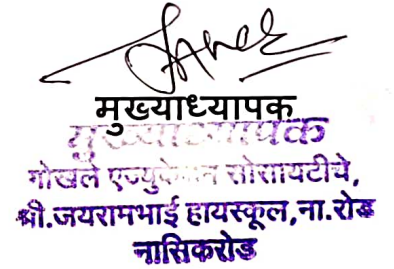 मुख्याध्यापक
मुख्याध्यापक
गोखले एज्युकेशन सोसायटीचे,
श्री.जयरामभाई हायस्कूल,ना.रोड
नासिकरोड